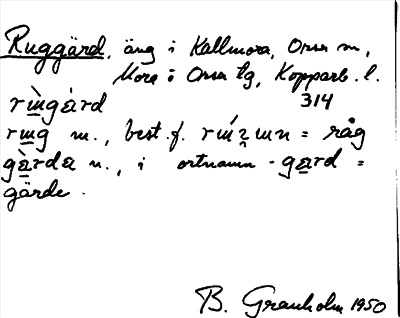 Ruggärd, äng i Kallmora, Orsa sn,
Mora o Orsa tg, Kopparb. l.
314
rɯ̀gàrd
rɯg m., best. f. rɯ́ʒɯn = råg
gàrda n., i ortnamn -gard =
gärde.
B. Granholm 1950